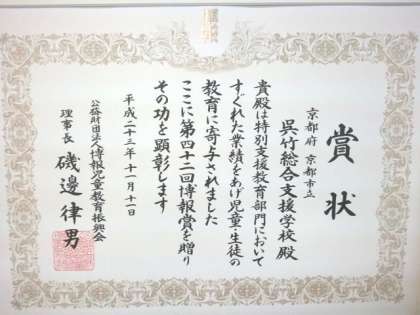 賞状
京都府 京都市立
呉竹総合支援学校殿
貴殿は特別支援教育部門において
すぐれた業績をあげ児童・生徒の
教育に寄与されました
ここに第四十二回博報賞を贈り
その功を顕彰します
平成二十三年十一月十一日
公益財団法人博報児童教育振興会
理事長 磯邊律男